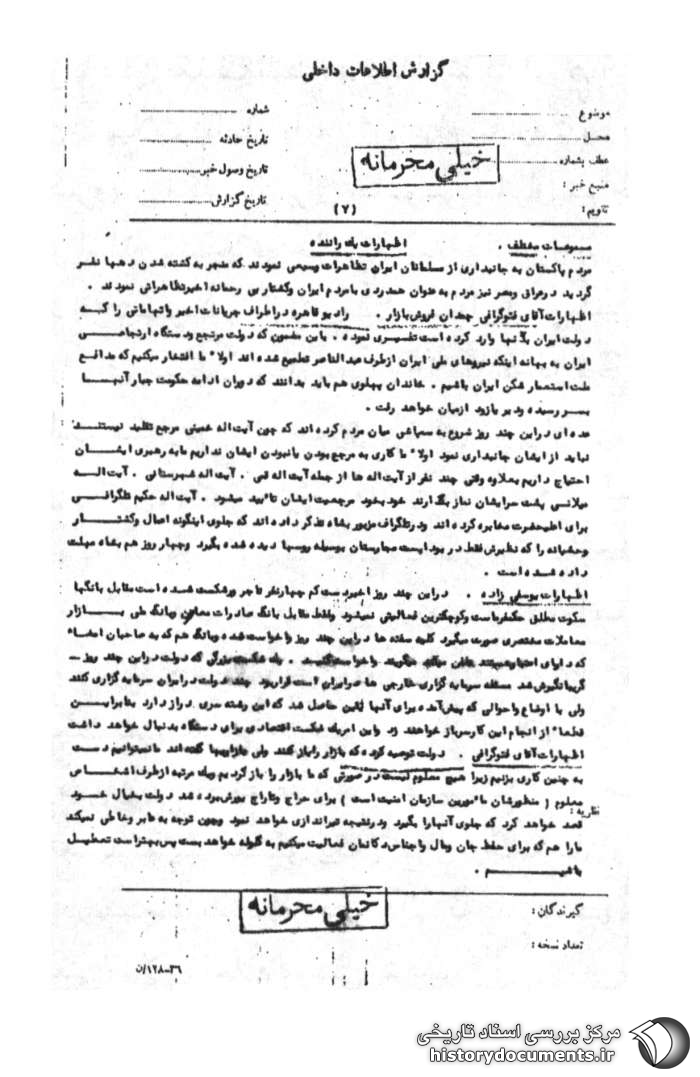 گزارش اطلاعات داخلی
موضوع
شماره
محل
تاریخ حادثه
عطف بشماره
خیلی محرمانه
تاریخ وصول خبر
منبع خبر :
تاریخ گزارش
تقویم :
(۷)
مسموعات مختلف . اظهارات یك راننده
مردم پاكستان به جانبداری از مسلمانان ایران تظاهرات وسیعی نمودند كه منجر به كشته شدن دهها نفر
گردید در عراق ومصر نیز مردم به عنوان همدردی با مردم ایران وكشتار بی رحمانه اخیر تظاهراتی نمودند .
اظهارات آقای فتوگرافی چمدان فروش بازار . رادیو قاهره در اطراف جریانات اخیر واتهاماتی را كه
دولت ایران بآنها وارد كرده است تفسیری نموده . باین مضمون كه دولت مرتجع ودستگاه ارتجاعی
ایران به بهانه اینكه نیروهای ملی ایران از طرف عبدالناصر تطمیع شده اند اولا" ما افتخار میكنیم كه مدافع
ملت استعمار شكن ایران باشیم . خاندان پهلوی هم باید بدانند كه دوران ادامه حكومت جبار آنها
بسر رسیده ودیر یا زود از میان خواهد رفت .
عده ای در این چند روز شروع به سمپاشی میان مردم كرده اند كه چون آیت اله خمینی مرجع تقلید نیستند
نباید از ایشان جانبداری نمود اولا" ما كاری به مرجع بودن یا نبودن ایشان نداریم ما به رهبری ایشان
احتیاج داریم بعلاوه وقتی چند نفر از آیت اله ها از جمله آیت اله قمی . آیت اله شهرستانی . آیت اله
میلانی پشت سر ایشان نماز بگذارند خود بخود مرجعیت ایشان تا"یید میشود . آیت اله حكیم تلگرافی
برای اعلیحضرت مخابره كرده اند ودر تلگراف مزبور بشاه تذكر داده اند كه جلوی اینگونه اعمال وكشتار
وحشیانه را كه نظیرش فقط در بوداپست مجارستان بوسیله روسها دیده شده بگیرد وچهار روز هم بشاه مهلت
داده شده است .
اظهارات یوسفی زاده . در این چند روز اخیر دست كم چهار نفر تاجر ورشكست شده است مقابل بانكها
سكوت مطلق حكمفرماست وكوچكترین فعالیتی نمیشود وفقط مقابل بانك صادرات معادن وبانك ملی بازار
معاملات مختصری صورت میگیرد كلیه سفته ها در این چند روز واخواست شده وبانك هم كه به صاحبان امضاء
كه دارای اعتبار هستند تلفن میكند میگویند واخواست كنید . یك شكست بزرگی كه دولت در این چند روز
گریبانگیرش شد مسئله سرمایه گزاری خارجی ها در ایران است قرار بود چند دولت در ایران سرمایه گزاری كنند
ولی با اوضاع واحوالی كه پیش آمده برای آنها یقین حاصل شد كه این رشته سری دراز دارد بنابراین
قطعا" از انجام این كار سرباز خواهند زد واین امر یك شكست اقتصادی برای دستگاه بدنبال خواهد داشت
اظهارات آقای فتوگرافی . دولت توصیه كرده كه بازار را باز كنند ولی بازاریها گفته اند ما نمیتوانیم دست
به چنین كاری بزنیم زیرا هیچ معلوم نیست در صورتی كه ما بازار را باز كردیم ویك مرتبه از طرف اشخاص
معلوم ( منظورشان ما"مورین سازمان امنیت است ) برای حراج وتاراج یورش برده شد دولت بخیال خود
نظریه :
قصد خواهد كرد كه جلوی آنها را بگیرد ودر نتیجه تیراندازی خواهد نمود وچون توجه به عابر وخاطی نمیكند
ما را هم كه برای حفظ جان ومال واجناس دكانمان فعالیت میكنیم به گلوله خواهد بست پس بهتر است تعطیل
باشیم .
خیلی محرمانه
گیرندگان :
تعداد نسخه :
۱۲۸-۳۶/ن
مرکز بررسی اسناد تاریخی
historydocuments.ir